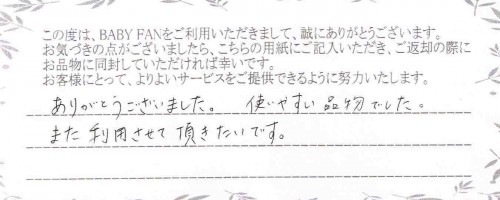 この度は、BABY FANをご利用いただきまして、誠にありがとうございます。
お気づきの点がございましたら、こちらの用紙にご記入いただき、ご返却の際に
お品物に同封していただければ幸いです。
お客様にとって、よりよいサービスをご提供できるように努力いたします。
ありがとうございました。 使いやすい品物でした。
また利用させて頂きたいです。